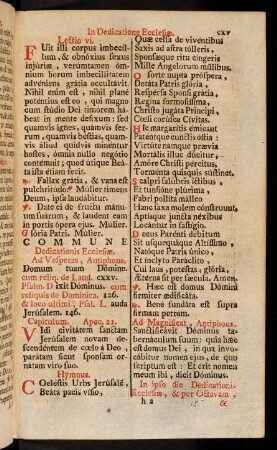 In Dedicatione Ecclesiæ. cxv
Lectio vj.
FUit isti corpus imbecil-
lum, & obnóxius sexus
injúriæ, verúmtamen óm-
nium horum imbecillitátem
adveniens grátia occultávit.
Nihil enim est, nihil planè
poténtius est eo, qui magno
cum stúdio Dei timórem há-
beat in mente defíxum: sed
quamvis ignes, quámvis fer-
rum, quámvis béstias, quam-
vis áliud quídvis minéntur
hostes, ómnia nullo negótio
contémnit; quod útique Bea-
ta ista étiam fecit.
℟. Fallax grátia, & vana est
pulchritúdo. * Múlier timens
Deum, ipsa laudábitur.
℣. Date ei de fructu má-
nuum suárum, & laudent eam
in portis ópera ejus. Múlier.
Glória Patri. Múlier.
COMMUNE
Dedicationis Ecclesiæ.
Ad Vesperas, Antiphona.
Domum tuam Dómine.
cum reliq. de Laud. cxxv.
Psalm. Dixit Dóminus. cum
reliquis de Dominica. 126.
& loco ultimi, Psal. Lauda
Jerúsalem. 146.
Capitulum. Apoc. 21.
VIdi civitátem sanctam
Jerúsalem novam de-
scendéntem de cœlo à Deo,
parátam sicut sponsam or-
nátam viro suo.
Hymnus.
COeléstis Urbs Jerúsalé,
Beáta pacis vísio,
Quæ celsa de vivéntibus
Saxis ad astra tólleris,
Sponsǽque ritu cíngeris
Mille Angelórum míllibus.
O sorte nupta próspera,
Dotáta Patris glória,
Respérsa Sponsi grátia,
Regína formosíssima,
Christo jugáta Príncipi,
Cœli corúsca Cívitas.
Hic margarítis émicant
Paténtque cunctis óstia;
Virtúte namque prǽvia
Mortális illuc dúcitur,
Amóre Christi pércitus,
Torménta quisquis sústinet.
Scalpri salúbris íctibus,
Et tunsióne plúrima,
Fabri políta málleo
Hanc saxa molem cónstruunt,
Aptísque juncta néxibus
Locántur in fastígio.
Decus Parénti débitum
Sit usquequáque Altíssimo,
Natóque Patris único,
Et ínclyto Paráclito,
Cui laus, potéstas, glória,
Ætérna sit per sǽcula. Amen.
℣. Hæc est domus Dómini
fírmiter ædificáta.
℟. Bene fundáta est supra
firmam petram.
Ad Magnificat, Antiphona.
Sanctificávit Dóminus ta-
bernáculum suum: quia hæc
est domus Dei, in qua invo-
cábitur nomen ejus, de quo
scriptum est: Et erit nomen
meum ibi, dicit Dóminus.
In ipso die Dedicationis
Ecclesiæ, & per Octavam,
h 2 &